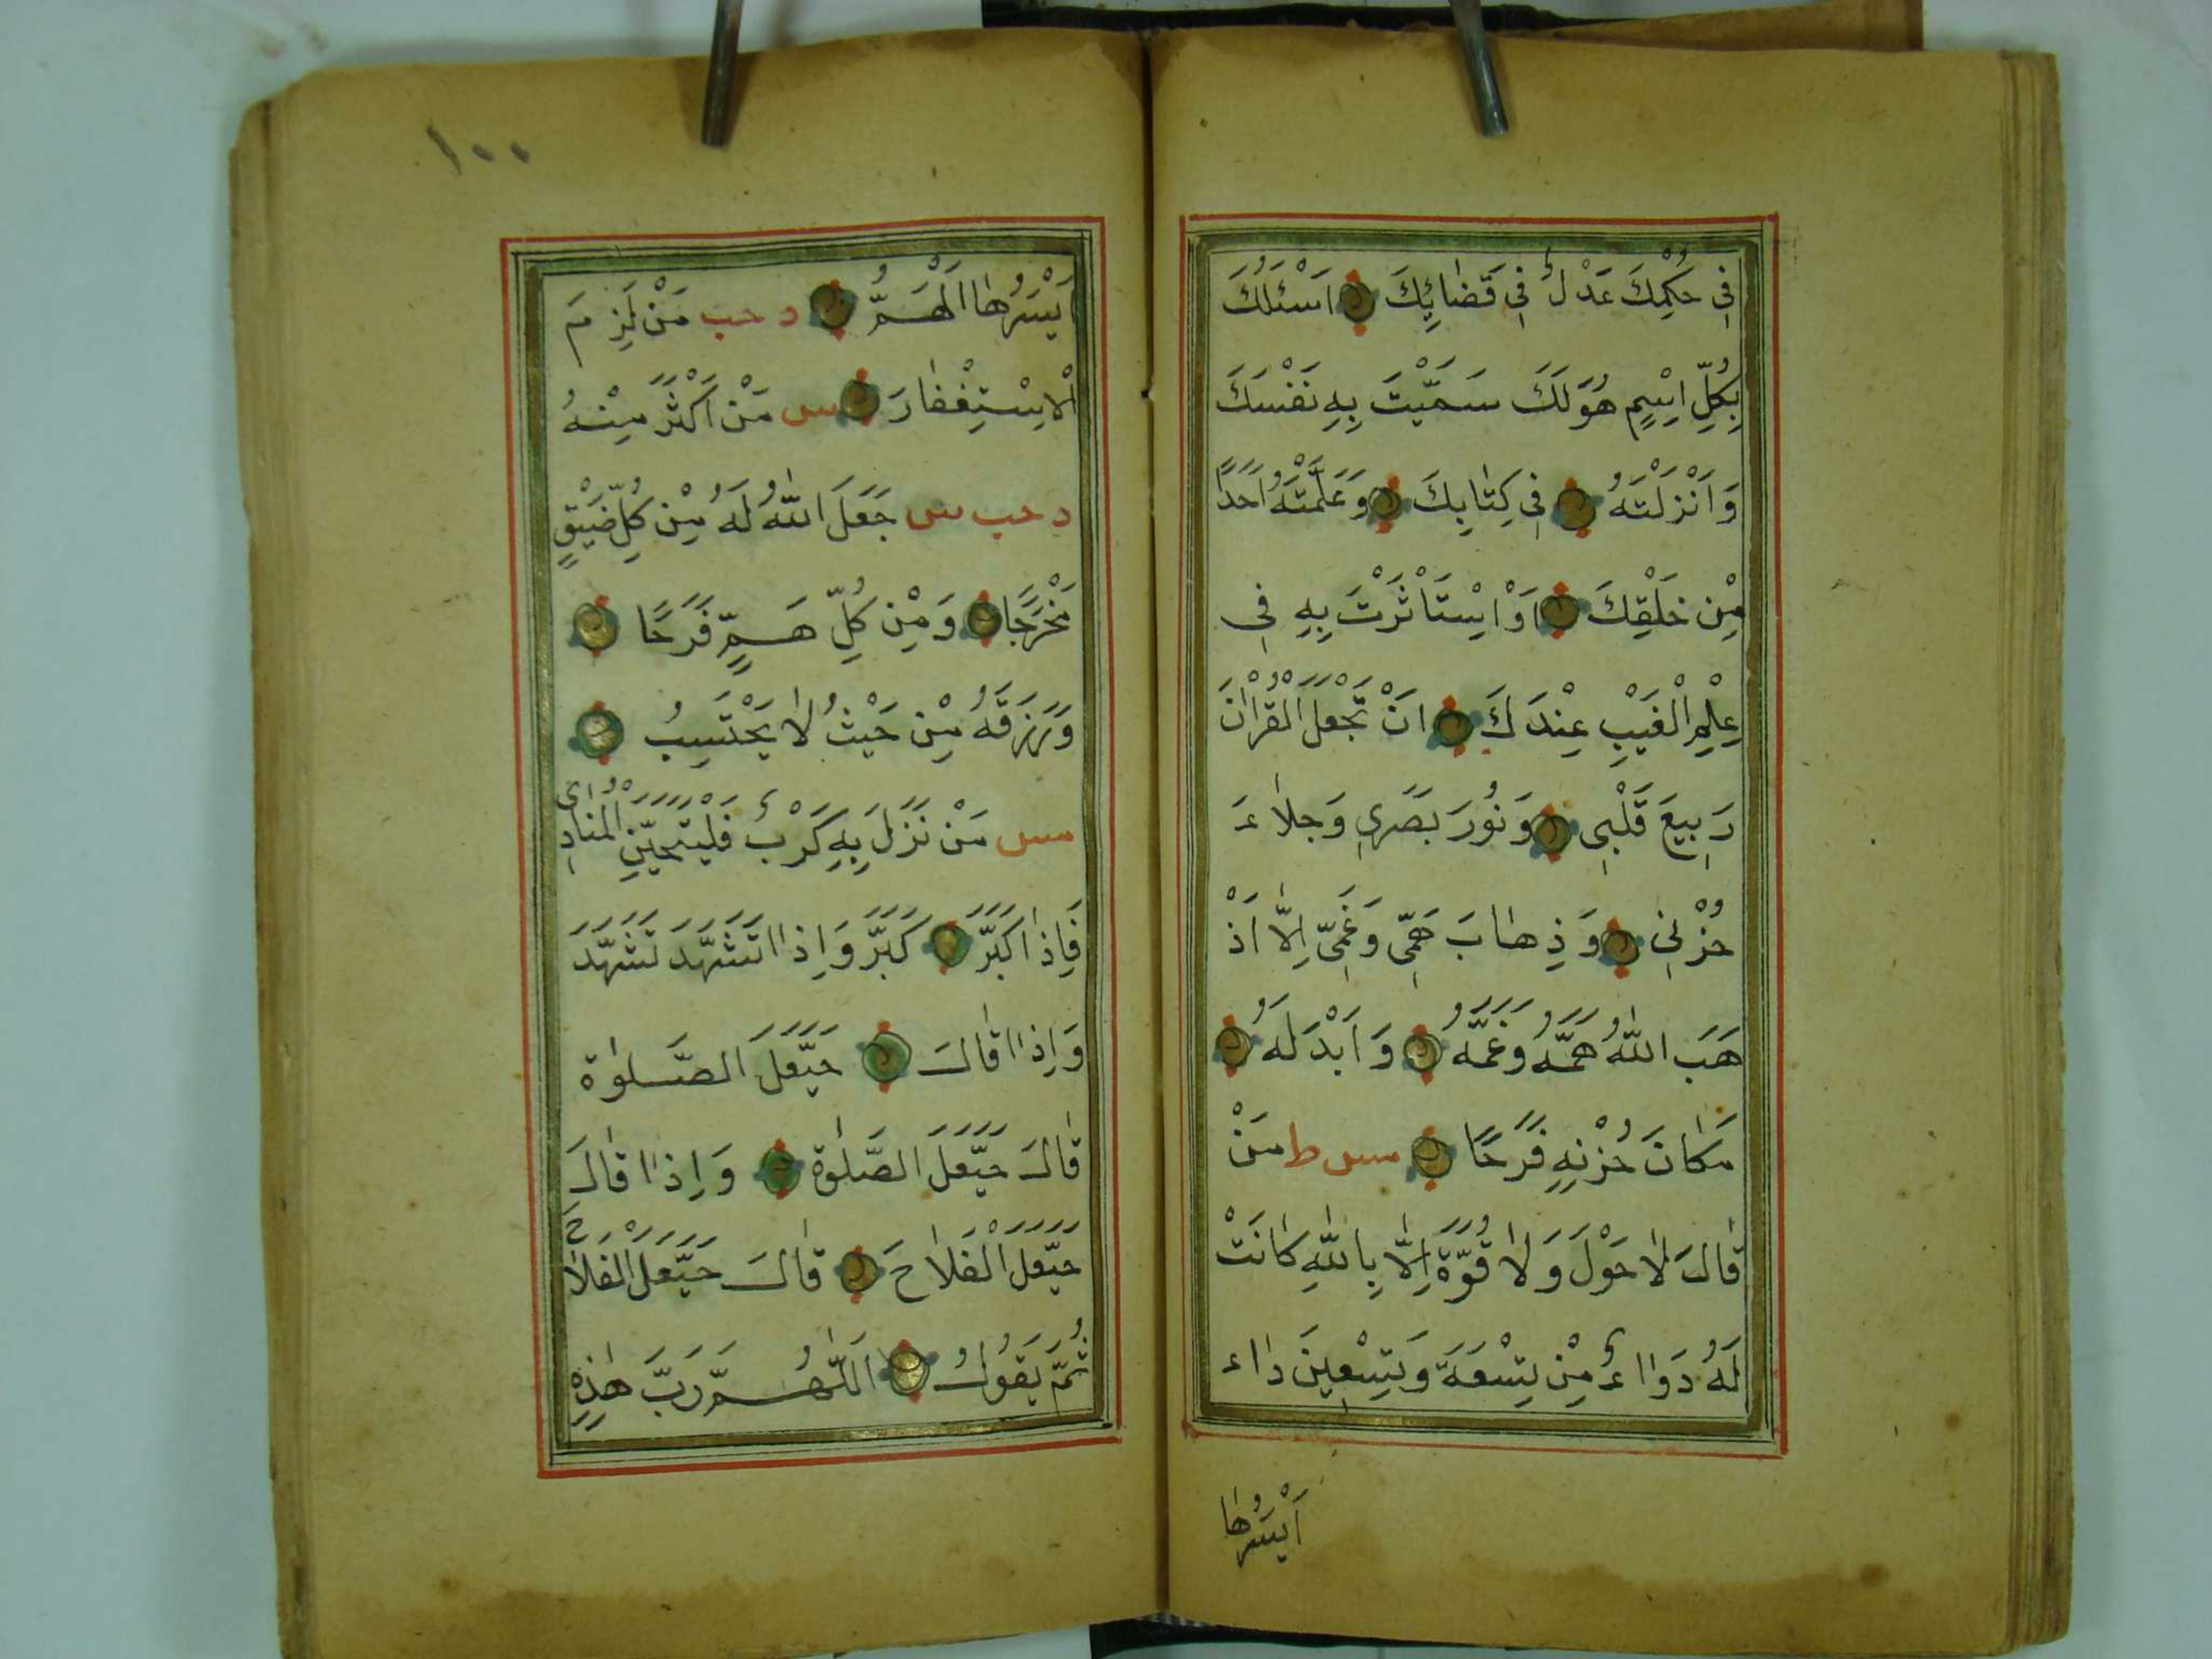 فِي حُكْمِكَ عَدْلٌ فِي قَضَائِكَ اَسْئَلُكَ
بِكُلِّ اِسْمٍ هُوَ لَكَ سَمَّيْتَ بِهِ نَفْسَكَ
وَاَنْزَلْتَهُ فِي كِتَابِكَ وَعَلَّمْتَهُ اَحَدًا
مِنْ خَلْقِكَ اَوْ اِسْتَاْثَرْتَ بِهِ فِي
عِلْمِ الْغَيْبِ عِنْدَكَ اَنْ تَجْعَلَ الْقُرْاٰنَ
رَبِيعَ قَلْبِي وَنُورَ بَصَرِي وَجَلَاءَ
حُزْنِي وَذِهَابَ هَمِّي وَغَمِّي اِلَّا اَذْ
هَبَ اللّٰهُ هَمَّهُ وَغَمَّهُ وَاَبْدَلَهُ
مَكَانَ حُزْنِهِ فَرَحًا مس ط مَنْ
قَالَ لَا حَوْلَ وَلَا قُوَّةَ اِلَّا بِاللّٰهِ كَانَتْ
لَهُ دَوَاءٌ مِنْ تِسْعَةَ وَتِسْعِينَ دَاء
اَيْسَرُهَا
١٠٠
اَيْسَرُهَا الْهَمُّ د حب مَنْ لَزِمَ
الْاِسْتِغْفَارَ س مَنْ اَكْثَرَ مِنْهُ
د حب س جَعَلَ اللّٰهُ لَهُ مِنْ كُلِّ ضَيْقٍ
مَخْرَجًا وَمِنْ كُلِّ هَمٍّ فَرَحًا
وَرَزَقَهُ مِنْ حَيْثُ لَا يَحْتَسِبُ
مس مَنْ نَزَلَ بِهِ كَرْبٌ فَلْيَتَحَيَّنِ الْمُنَادِي
فَاِذَا كَبَّرَ كَبَّرَ وَاِذَا تَشَهَّدَ تَشَهَّدَ
وَاِذَا قَالَ حَيَّعَلَ الصَّلٰوة
قَالَ حَيَّعَلَ الصَّلٰوة وَاِذَا قَالَ
حَيَّعَلَ الْفَلَاحَ قَالَ حَيَّعَلَ الْفَلَاحَ
ثُمَّ يَقُولُ اَللّٰهُمَّ رَبَّ هٰذِهِ